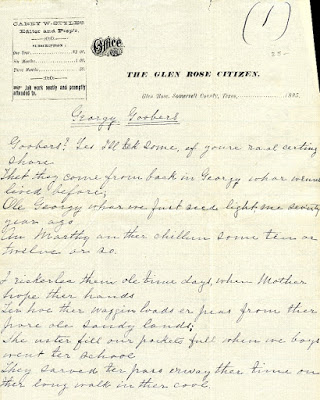 (1)
CAREY W. STYLES
Editor and Prop'r.
SUBSCRIPTION:
One Year
Six Months
Three Months
Our job work neatly and promptly attended to.
Office
THE GLEN ROSE CITIZEN.
Glen Rose, Somervell County, Texas, 1887.
Georgy Goobers
Goobers? Yes I'll tek some, ef youre rael certing shore
Thet they come from back in Georgy whar we uns lived before;
Ole Georgy whar we fust seed light, me seventy year ago
An Marthy an ther chillun some ten or twelve or so.
I rickerlec them ole time days, when Mother hope ther hands
Ter hoe ther waggin loads er peas from ther pore ole sandy lands;
She uster fill our pockets full when we boys went ter school
They sarved ter pass erway ther time on ther long walk in ther cool.